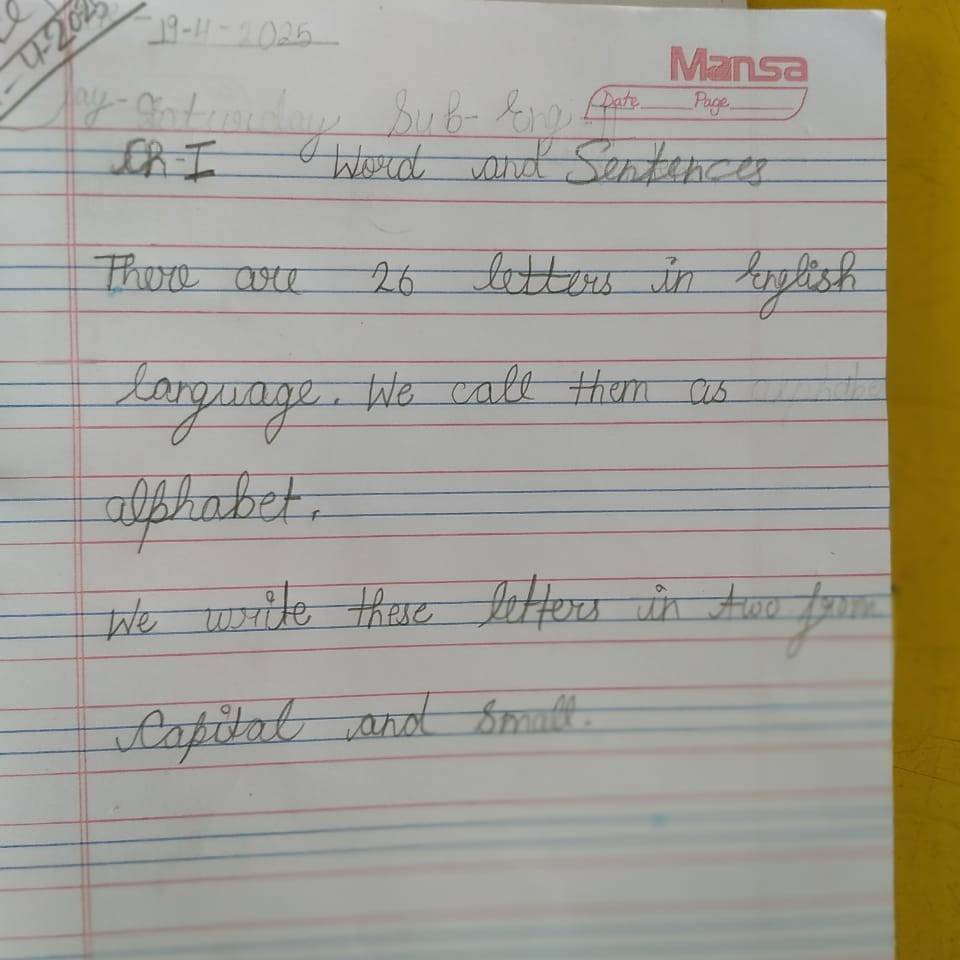 4-2025
19-4-2025
Mansa
Date Page
Day- Saturday Sub- Eng
Ch-I Word and Sentences
There are 26 letters in English
language. We call them as alphabe
alphabet.
We write these letters in two from
Capital and small.